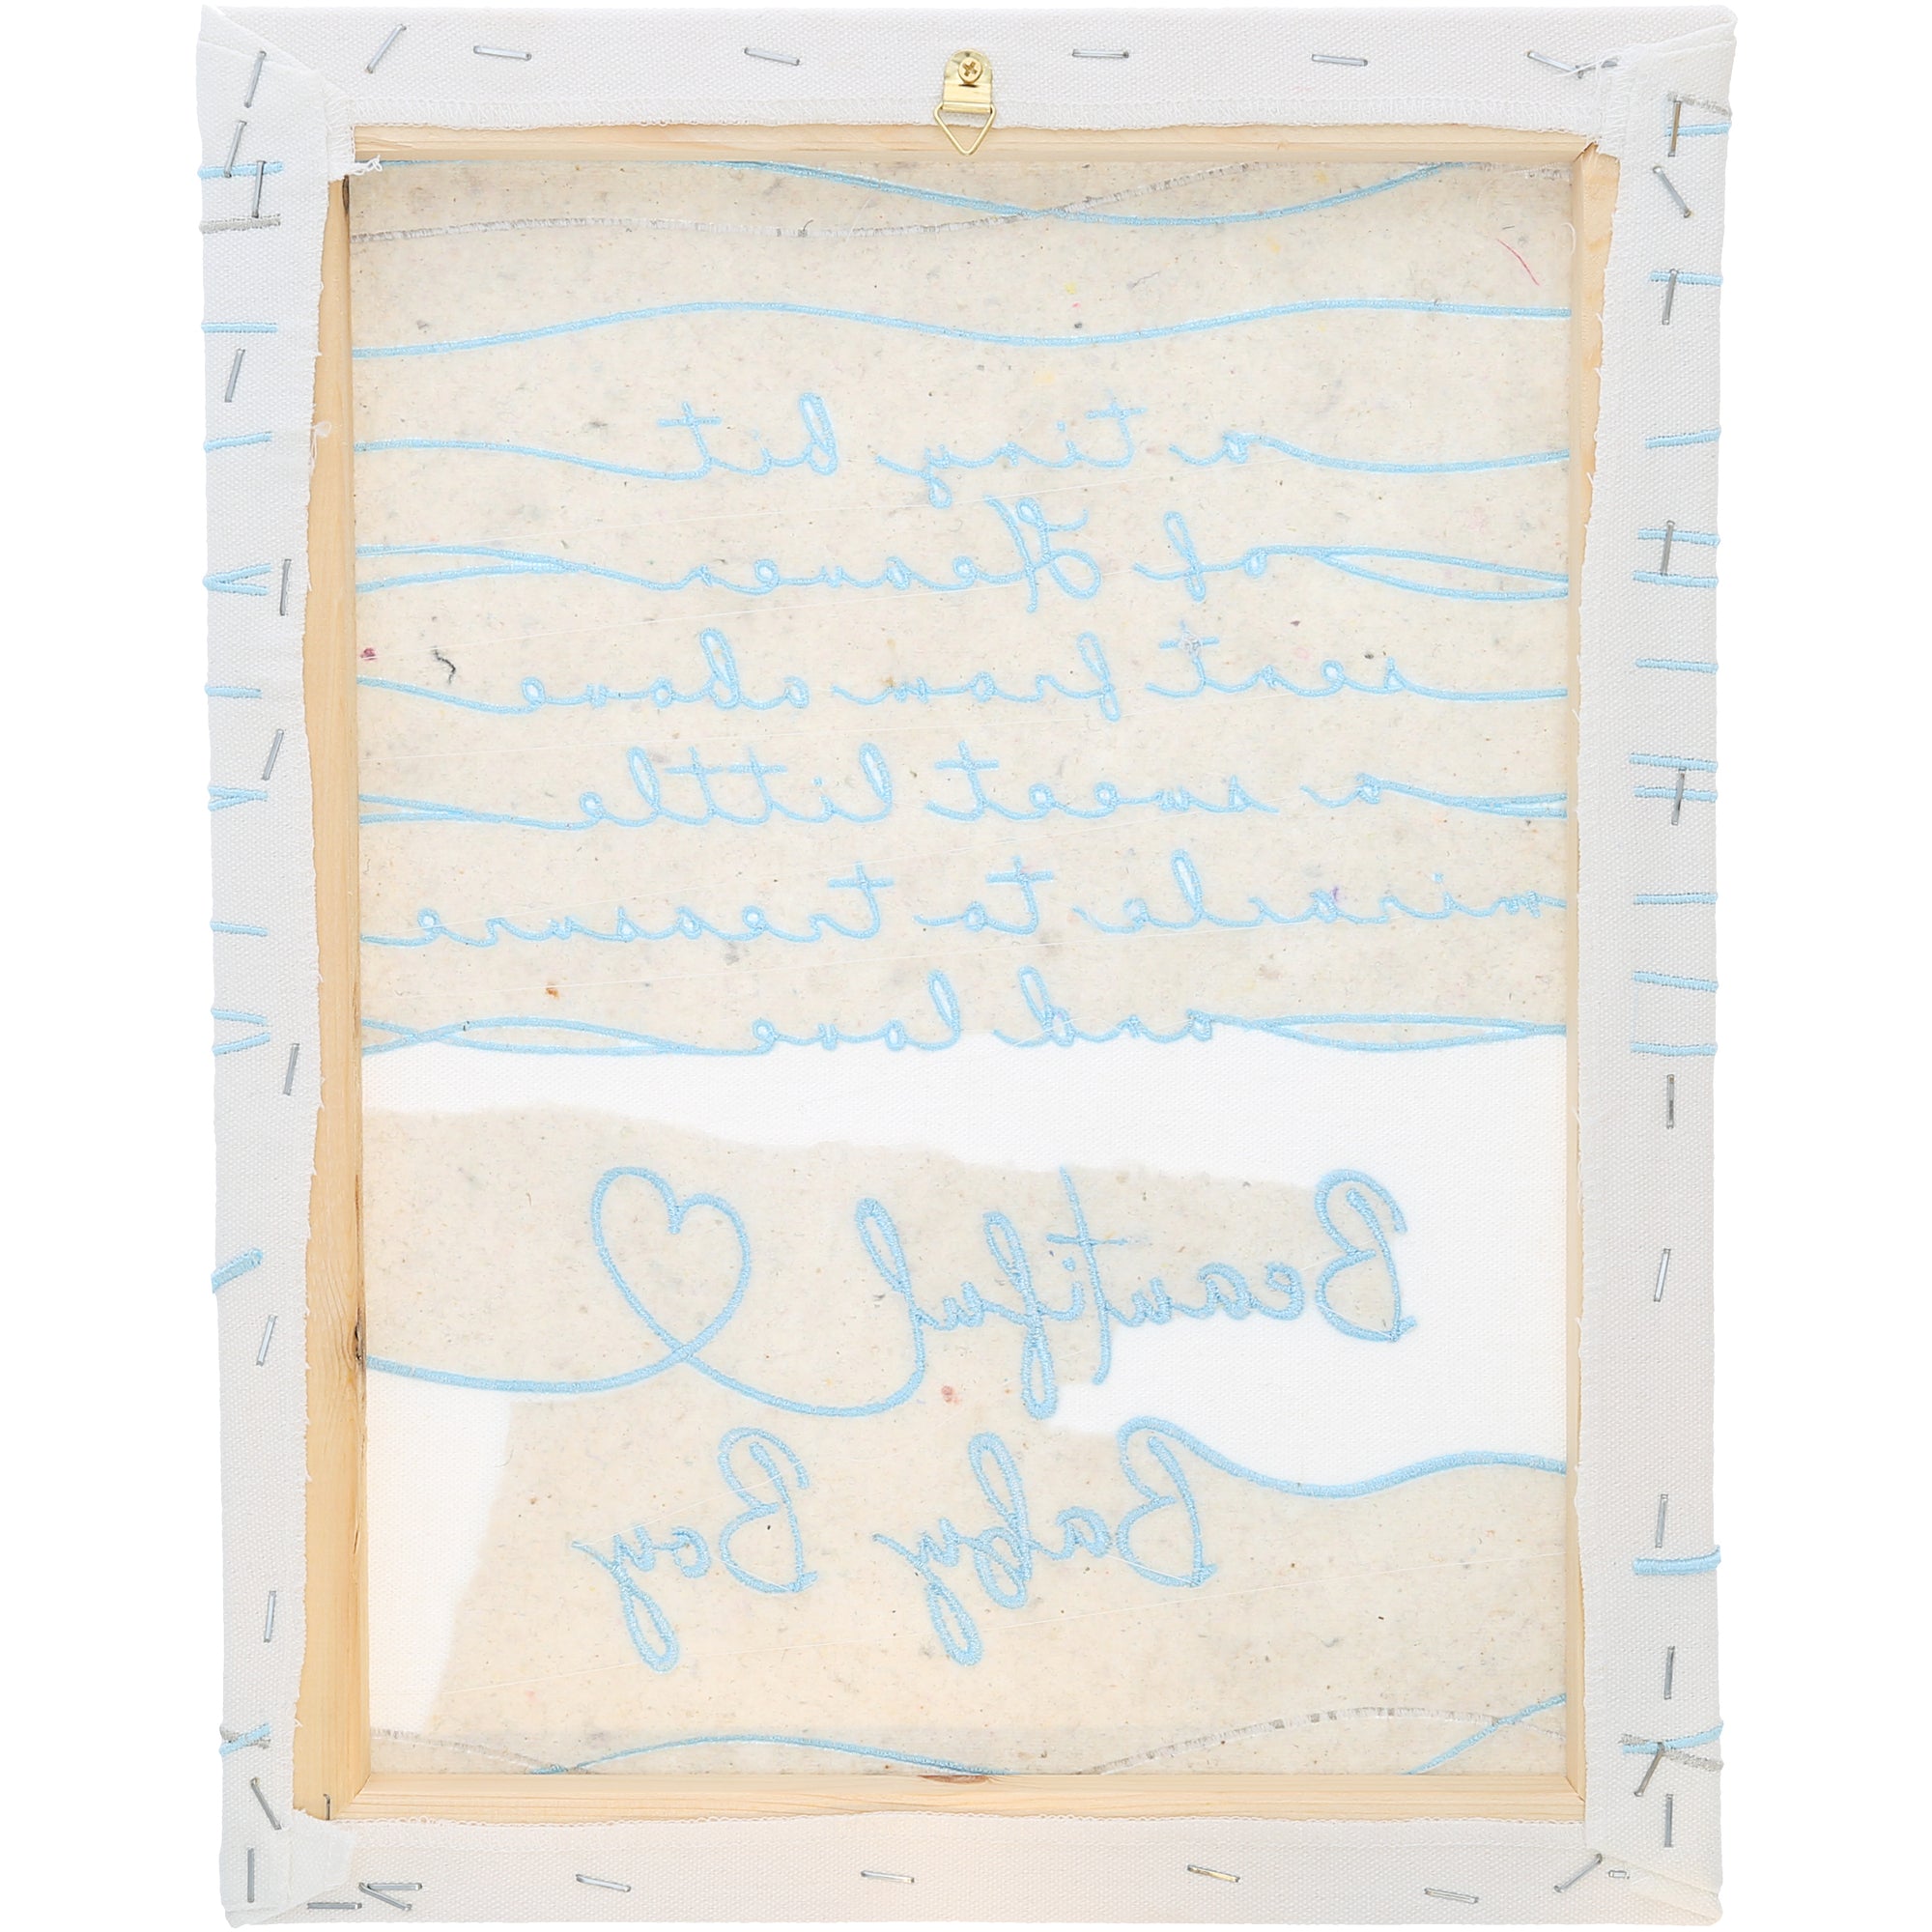 a tiny bit
of Heaven
sent from above
a sweet little
miracle to treasure
and love
Beautiful
Baby Boy